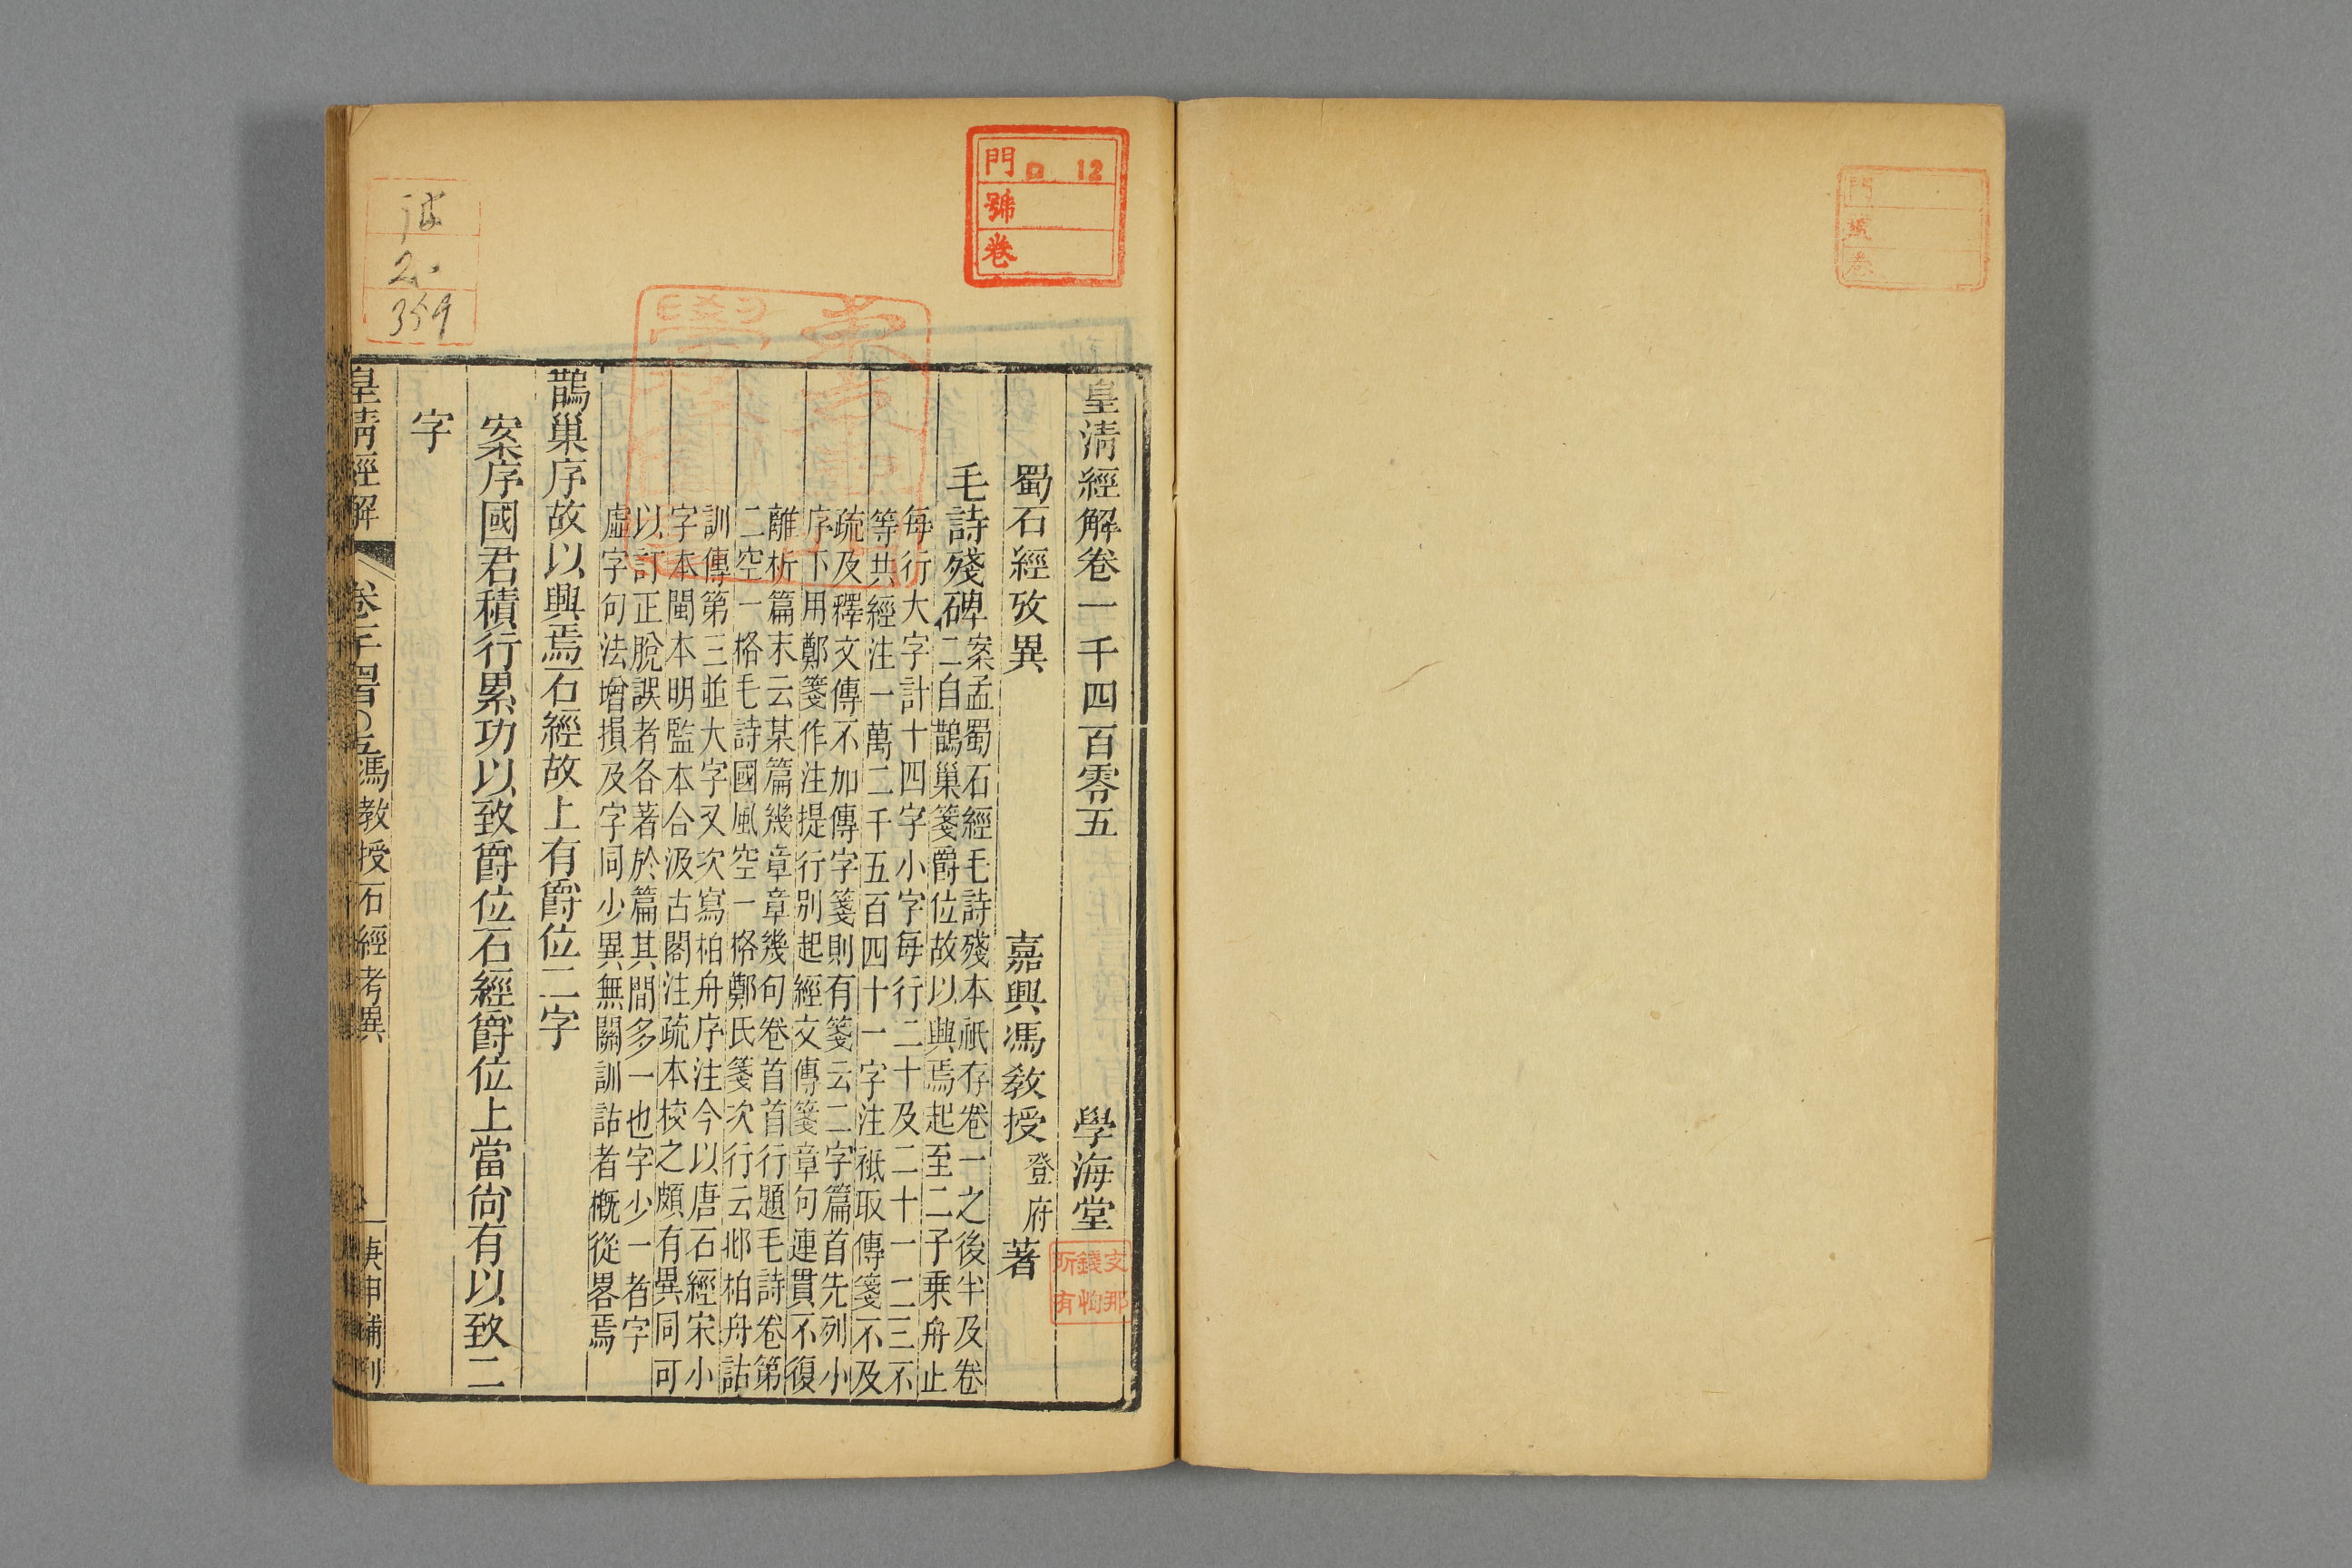 皇清經解卷一千四百零五　學海堂
蜀石經攷異　嘉興馮教授登府著
毛詩殘碑
案孟蜀石經毛詩殘本祇存卷一之後半及卷
二自鵲巢箋爵位故以興焉起至二子乗舟止
每行大字計十四字小字每行二十及二十一二三不
等共經注一萬二千五百四十一字注祇取傳箋不及
疏及釋文傳不加傳字箋則有箋云二字篇首先列小
序下用鄭箋作注提行别起經文傳箋章句連貫不復
離析篇末云某篇幾章章幾句卷首首行題毛詩卷第
二空一格毛詩國風空一格鄭氏箋次行云邶柏舟詁
訓傳第三並大字又次寫柏舟序注今以唐石經宋小
字本閩本明監本合汲古閣注疏本校之頗有異同可
以訂正脫誤者各著於篇其間多一也字少一者字
虛字句法增損及字同少異無關訓詁者概從畧焉
鵲巢序故以興焉石經故上有爵位二字
案序國君積行累功以致爵位石經爵位上當尙有以致二
字
皇清經解
馮教授石經考異
一
庚申補刊
門 口 12
號
卷
2.
359
門
號
卷